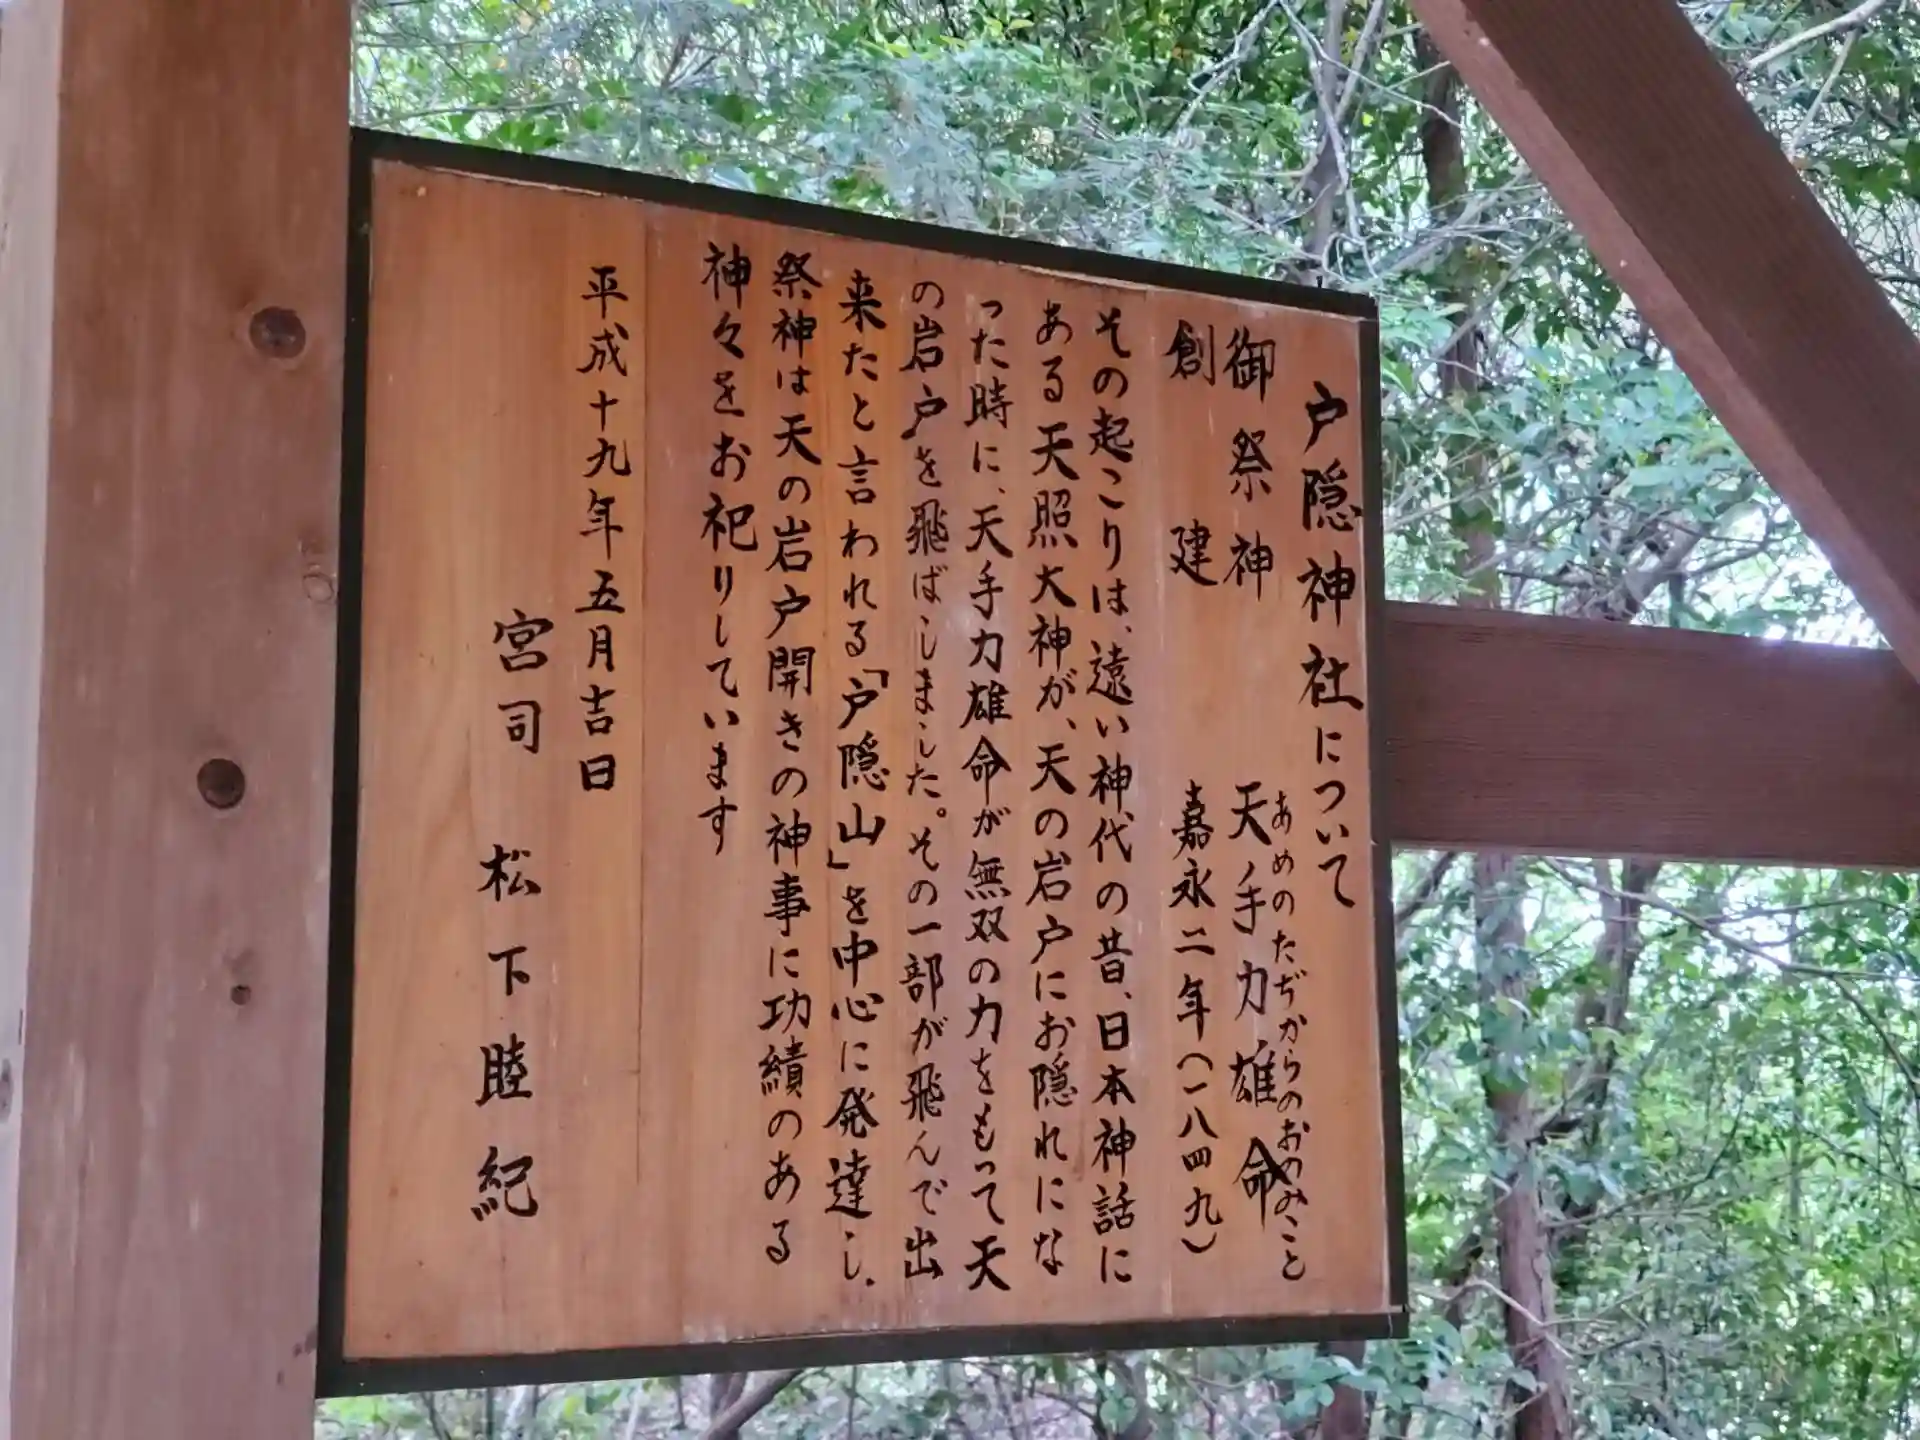 戸隠神社について
御祭神　天手力雄命
あめのたぢからのおのみこと
創建　嘉永二年（一八四九）
その起こりは、遠い神代の昔、日本神話に
ある天照大神が、天の岩戸にお隠れにな
った時に、天手力雄命が無双の力をもって天
の岩戸を飛ばしました。その一部が飛んで出
来たと言われる「戸隠山」を中心に発達し、
祭神は天の岩戸開きの神事に功績のある
神々をお祀りしています
平成十九年五月吉日
宮司　松下睦紀